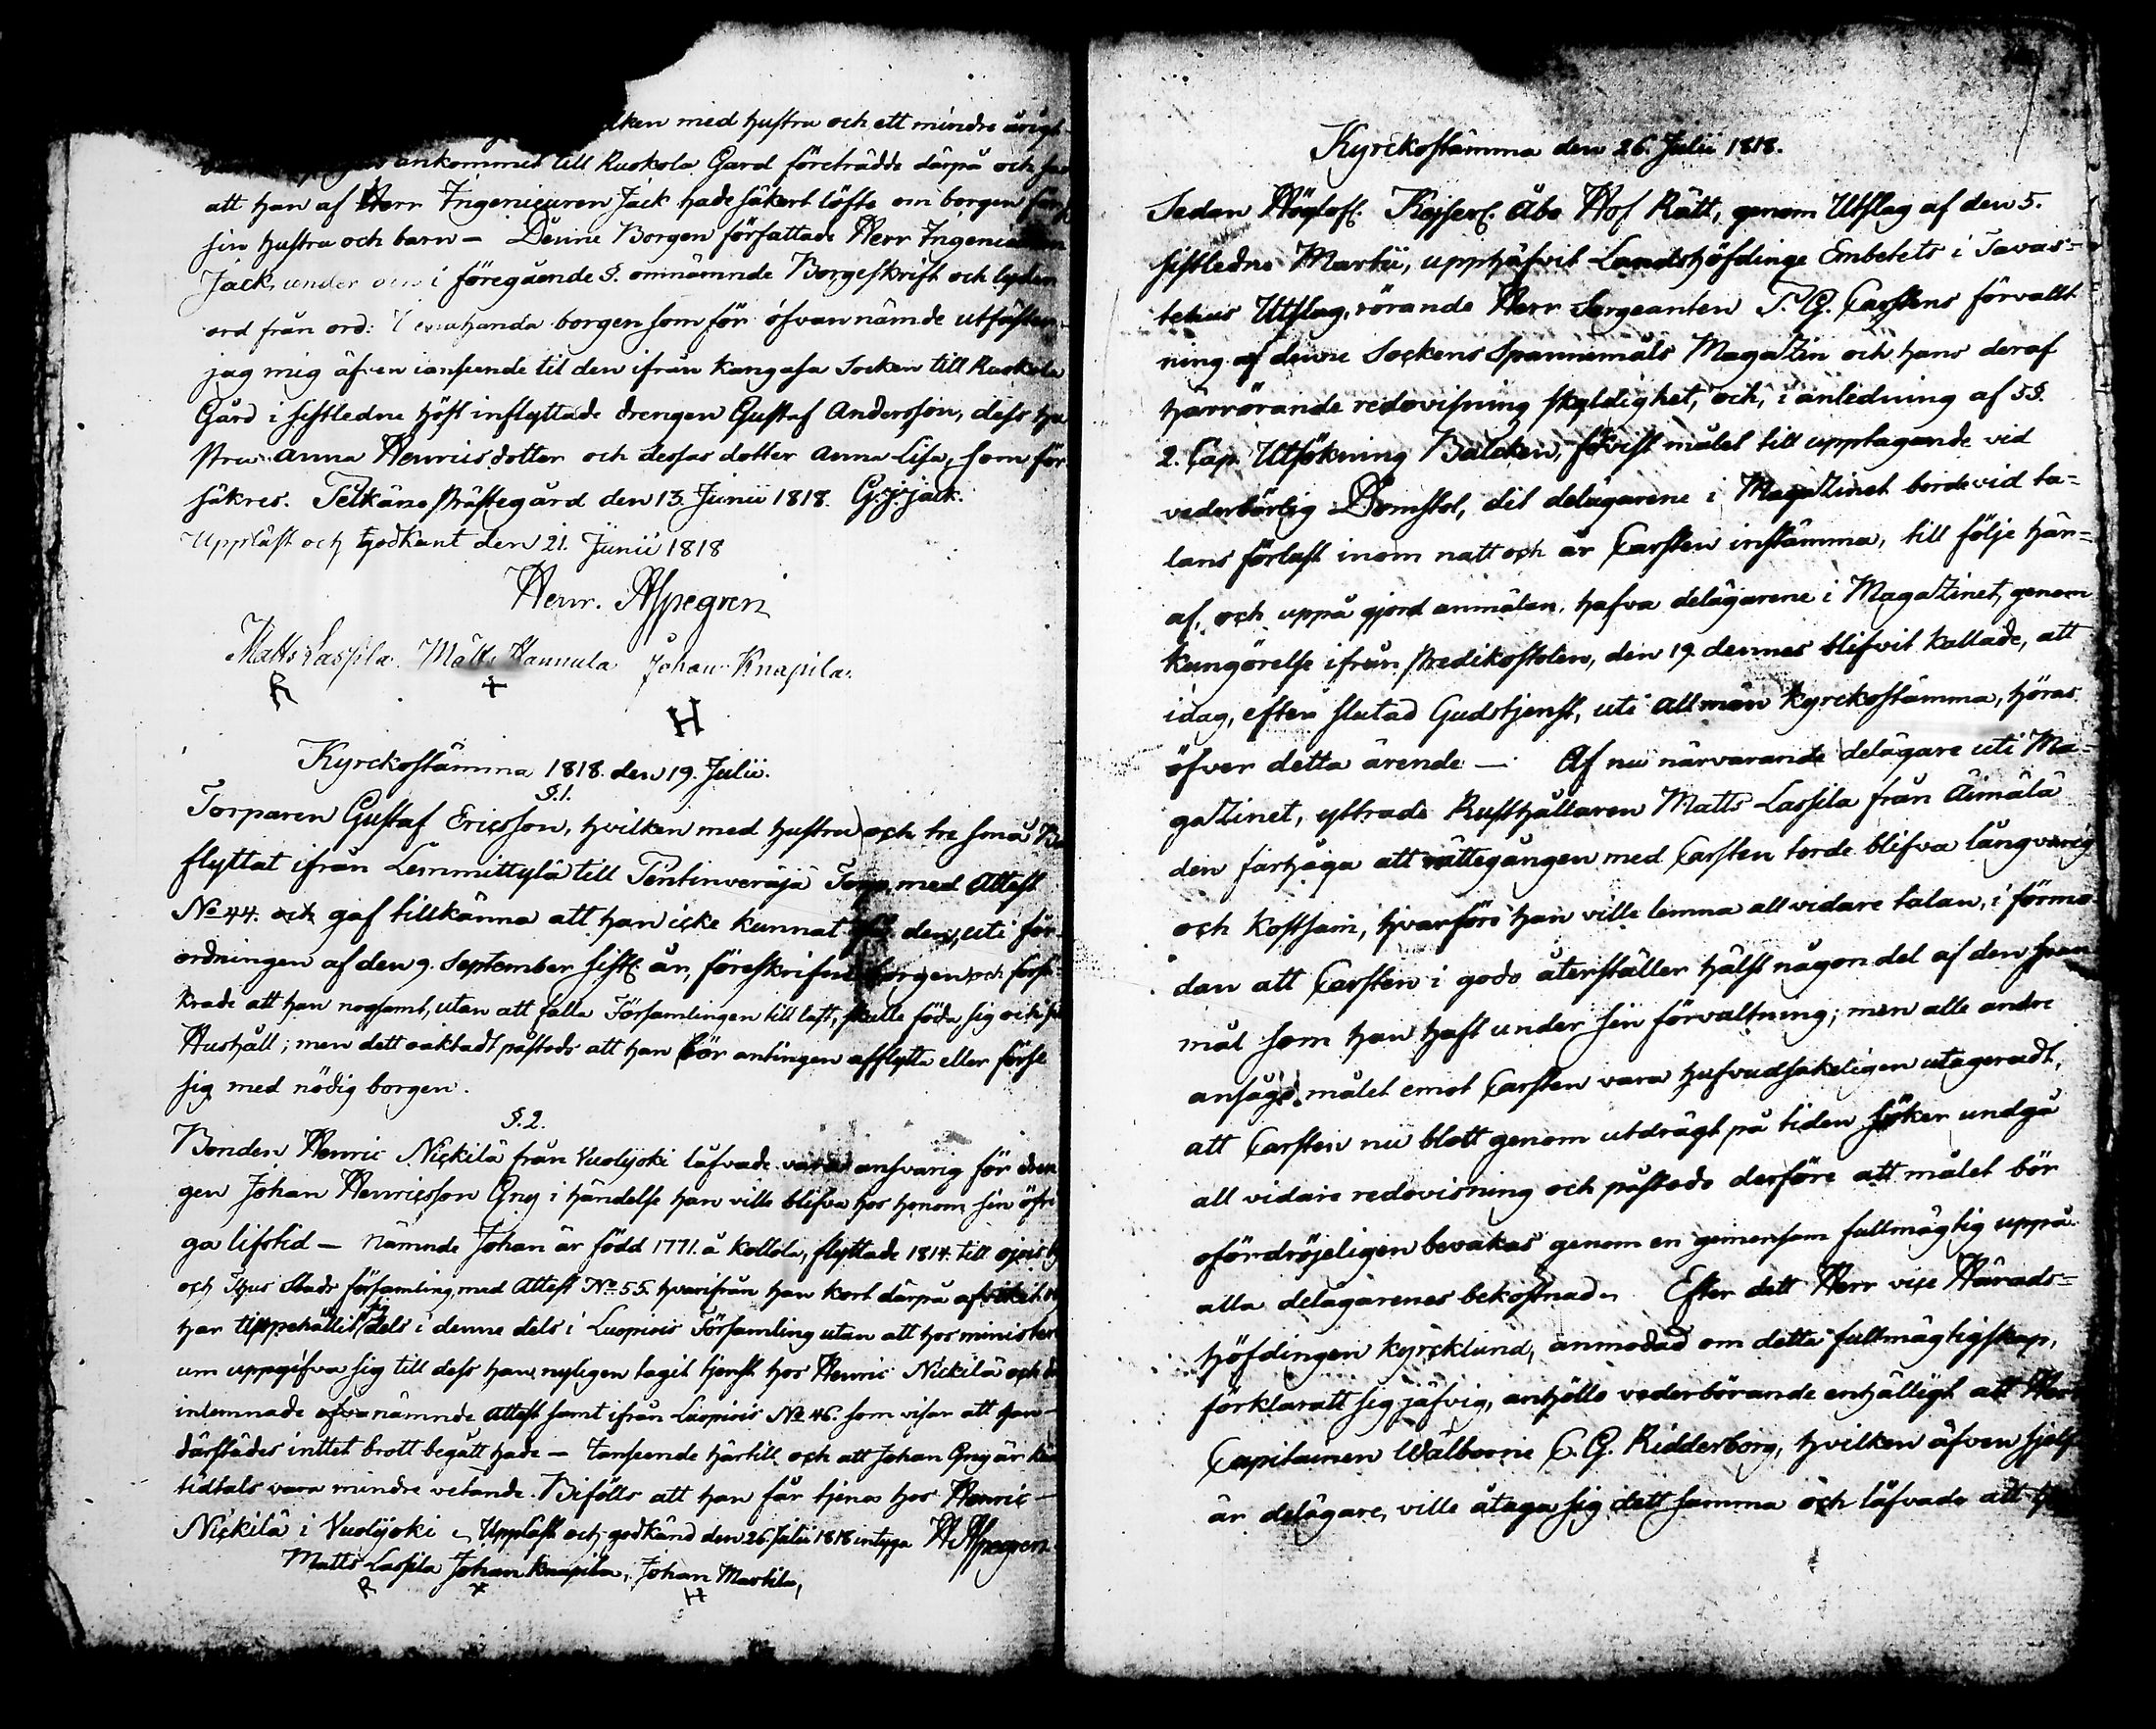 med hustru och ett mindre årigt
ankommit till Ruokola Gård företrädde därpå och
att han af Herr Ingenieuren Jack hade säkert löfte om borgen för
sin hustru och barn – Denne Borgen författade Herr Ingenieuren
Jack, under i föregående §. omnämnde Borgeskrift och lyder
ord från ord: borgen som för ofvannämde utfäster
jag mig äfven i anseende til den ifrån Kangasa Socken till Ruokola
Gård i sistledne höst inflyttade drengen Gustaf Andersson, dess hu
stru Anna Henricsdotter och dessas dotter Anna Lisa, som för
säkres. Pelkäne Prästegård den 13. Junii 1818. G.J. Jack.
Uppläst och Godkänt den 21. Junii 1818
Henr. Aspegren
Matts Lassila. Matts Hannula Johan Knapila.
R +
H
Kyrckostämma 1818. den 19. Julii.
§.1.
Torparen Gustaf Ericsson, hvilken med hustru och tre små
flyttat ifrån Lemmittylä till Pentinveräjä Torp med Attest
No 44. och gaf tillkänna att han icke kunnat få den, uti för-
ordningen af den 9. September sistl. år, föreskrifna borgen och försä-
krade att han nogsamt, utan att falla Församlingen till last, skulle föda sig och sitt
Hushåll; men dett oaktadt påstods att han bör antingen afflytta eller förse
sig med nödig borgen.
§.2.
Bonden Henric Nickilä från Vuolijoki låfvade vara ansvarig för dren
gen Johan Henricsson Grey i händelse han ville blifva hos honom sin öfri
ga lifstid – Nämnde Johan är född 1771. å Kollola, flyttade 1814. till
och Thus Stads församling med Attest No 55. hvarifrån han kort därpå afvikit
har uppehållit sig dels i denne dels i Luopiois Församling utan att hos minister
um uppgifva sig till dess han nyligen tagit tjenst hos Henric Nickilä och
inlemnade ofvanämnde Attest samt ifrån Luopiois No 46. som visar att han
därstädes inttet brott begått hade – I anseende härtill och att Johan Grey är
tidtals vara mindre vetande. Bifölls att han får tjena hos Henric
Nickilä i Vuolijoki. Uppläst och godkänd den 26 Julii 1818 intyga H Aspegren
Matts Lassila Johan Knapila, Johan Marttila,
R + H
Kyrckostämma den 26. Julii 1818.
Sedan Höglofl. Kejserl. Åbo Hof Rätt, genom Utslag af den 5.
sistledne Martii, upphäfvit Landshöfdinge Embetets i Tavas-
tehus Utslag, rörande Herr Sergeanten P. G. Carstens förvalt
ning af denne Sockens Spannemåls Magazin och hans deraf
härrörande redovisning skyldighet, och, i anledning af 5 §.
2. Cap. Utsökning Balcken, förvist målet till upptagande vid
vederbörlig Domstol, dit delägarene i Magazinet borde vid ta-
lans förlust inom natt och år Carsten instämma, till följe här-
af, och uppå gjord anmälan, hafva delägarene i Magazinet, genom
Kungörelse ifrån Predikostolen, den 19. dennes blifvit kallade, att
idag, efter slutad Gudstjenst, uti allmän Kyrckostämma, höras
öfver detta ärende – Af nu närvarande delägare uti Ma-
gazinet, yttrade Rusthållaren Matts Lassila från Äimälä
den farhåga att rättegången med Carsten torde blifva långvarig
och kostsam, hvarföre han ville lemna all vidare talan, i förmo
dan att Carsten i godo återställer hälst någon del af den span
mål som han haft under sin förvaltning; men alle andre
ansågo målet emot Carsten vara hufvudsakeligen utageradt,
att Carsten nu blott genom utdrägt på tiden söker undgå
all vidare redovisning och påstodo derföre att målet bör
ofördröjeligen bevakas genom en gemensam fullmägtig uppå
alla delägarenes bekostnad. Efter dett Herr vice Härads-
höfdingen Kyrcklund, anmodad om detta fullmägtigskap,
förklaratt sig jäfvig, anhöllo vederbörande enhälligt att Herr
Capitainen Wälborne C. G. Ridderborg, hvilken äfven sjelf
är delägare, ville åtaga sig dett samma och låfvade att